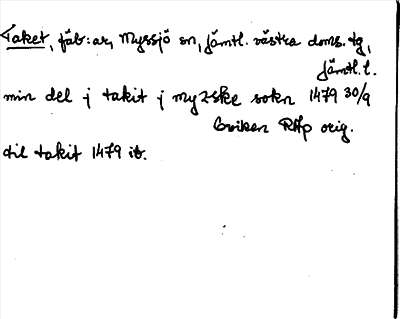 Taket, fäb:ar, Myssjö sn, Jämtl. västra doms. tg,
Jämtl. l.
min del j takit j myzske sokn 1479 30/9
Oviken RAp orig.
til takit 1479 ib.